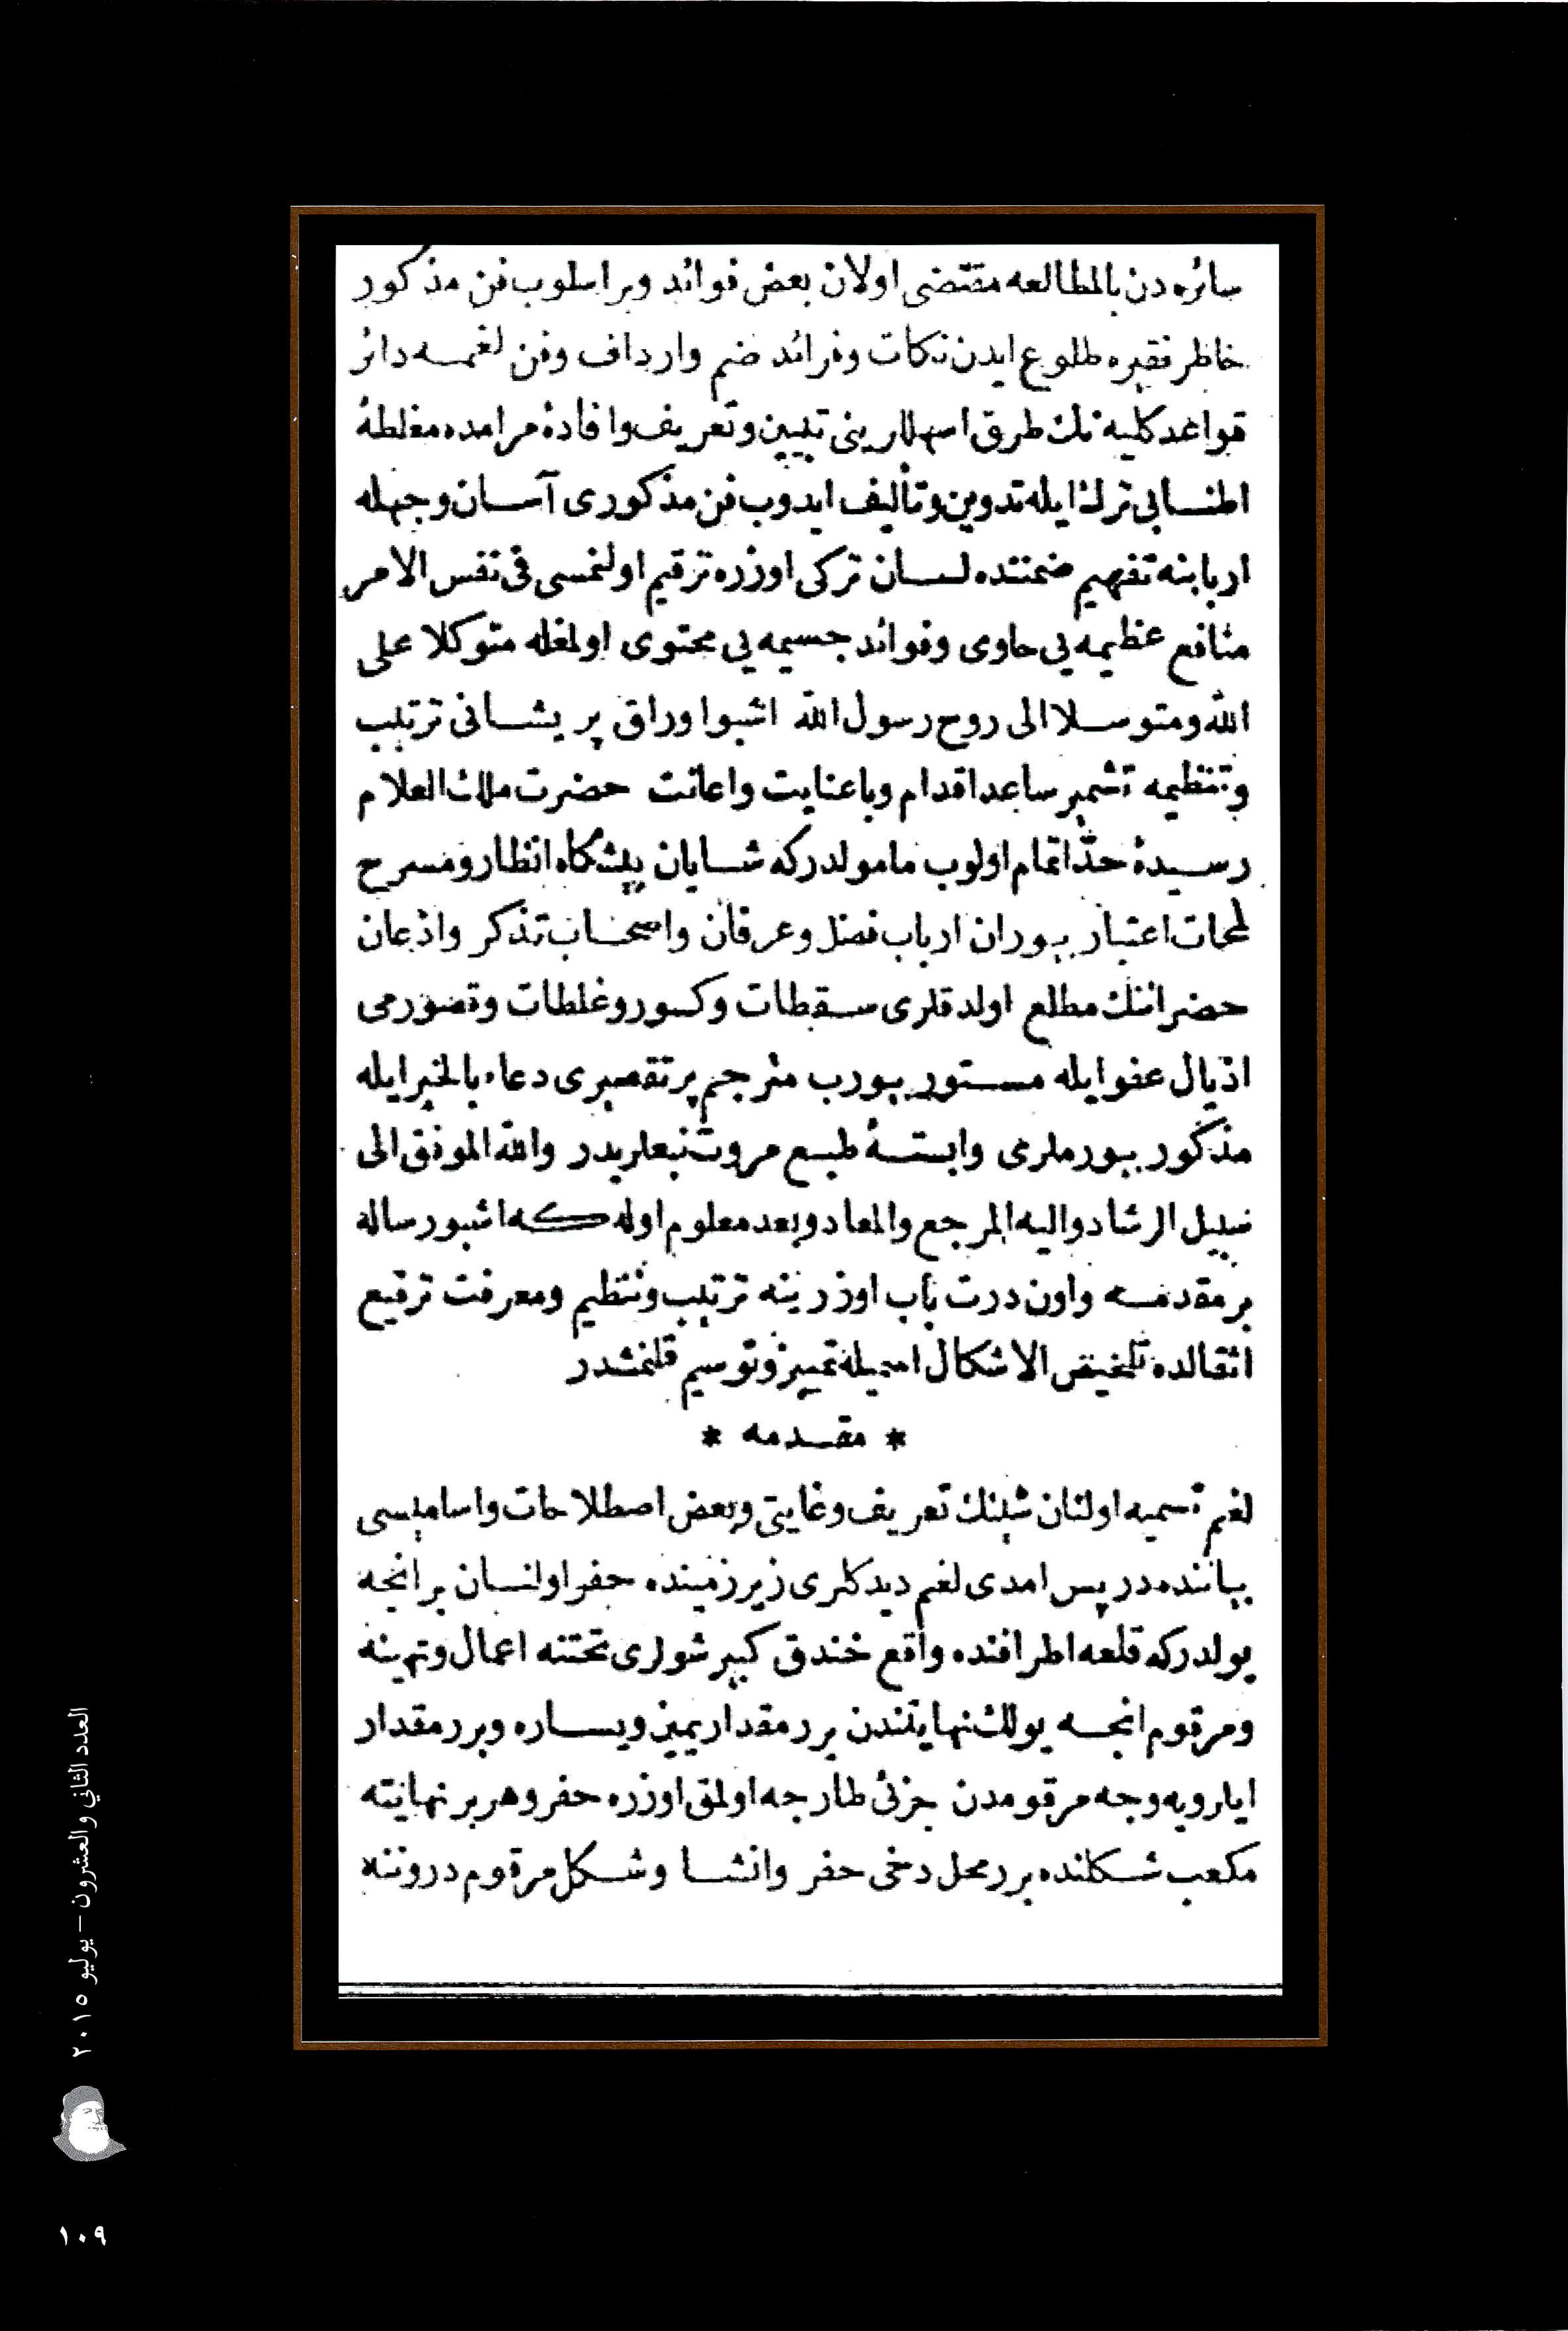 سائره‌دن بالمطالعه مقتضی اولان بعض فوائد وبر اسلوب فن مذکور
خاطر فقیره طلوع ایدن نکات وفرائد ضم وارداف وفن لغمه دائر
قواعد کلیه نك طرق اسهللرینی تبیین وتعریف وافادۀ مرامده مغلطۀ
اطنابی ترك ایله تدوین وتألیف ایدوب فن مذکوری آسان وجهله
اربابنه تفهیم ضمننده لسان ترکی اوزره ترقیم اولنمسی فی نفس الامر
منافع عظیمه یی حاوی وفوائد جسیمه یی محتوی اولمغله متوکلا علی
الله ومتوسلا الی روح رسول الله اشبو اوراق پریشانی ترتیب
وتنظیمه تشمیر ساعد اقدام وبا عنایت واعانت حضرت ملك العلام
رسیدۀ حد اتمام اولوب مامولدرکه شایان پیشکاه انظار ومسرح
لمحات اعتبار بیوران ارباب فضل وعرفان واصحاب تذکر واذعان
حضراتنك مطلع اولدقلری سقطات وکسور وغلطات وقصورمی
اذیال عفو ایله مستور بیورب مترجم پر تقصیری دعاء بالخیر ایله
مذکور بیورملری وابستۀ طبع مروت نبعلریدر والله الموفق الی
سبیل الرشاد والیه المرجع والمعاد وبعد معلوم اوله که اشبو رساله
بر مقدمه واون درت باب اوزرینه ترتیب وتنظیم ومعرفت ترقیع
اثقالده تلخیص الاشکال اسمیله تمییز وتوسیم قلنمشدر
* مقدمه *
لغم تسمیه اولنان شیئنك تعریف وغایتی وبعض اصطلاحات واسامیسی
بیاننده در پس امدی لغم دیدکلری زیر زمینده حفر اولنان بر انجه
یولدرکه قلعه اطرافنده واقع خندق کبیر شولری تحتنه اعمال وتهیئه
ومرقوم انجه یولك نهایتندن برر مقدار یمین ویساره وبرر مقدار
ایلرویه وجه مرقومدن جزئی طارجه اولمق اوزره حفر وهر بر نهایتنه
مکعب شکلنده برر محل دخی حفر وانشا وشکل مرقوم دروننه
العدد الثاني والعشرون – يوليو ٢٠١٥
١٠٩